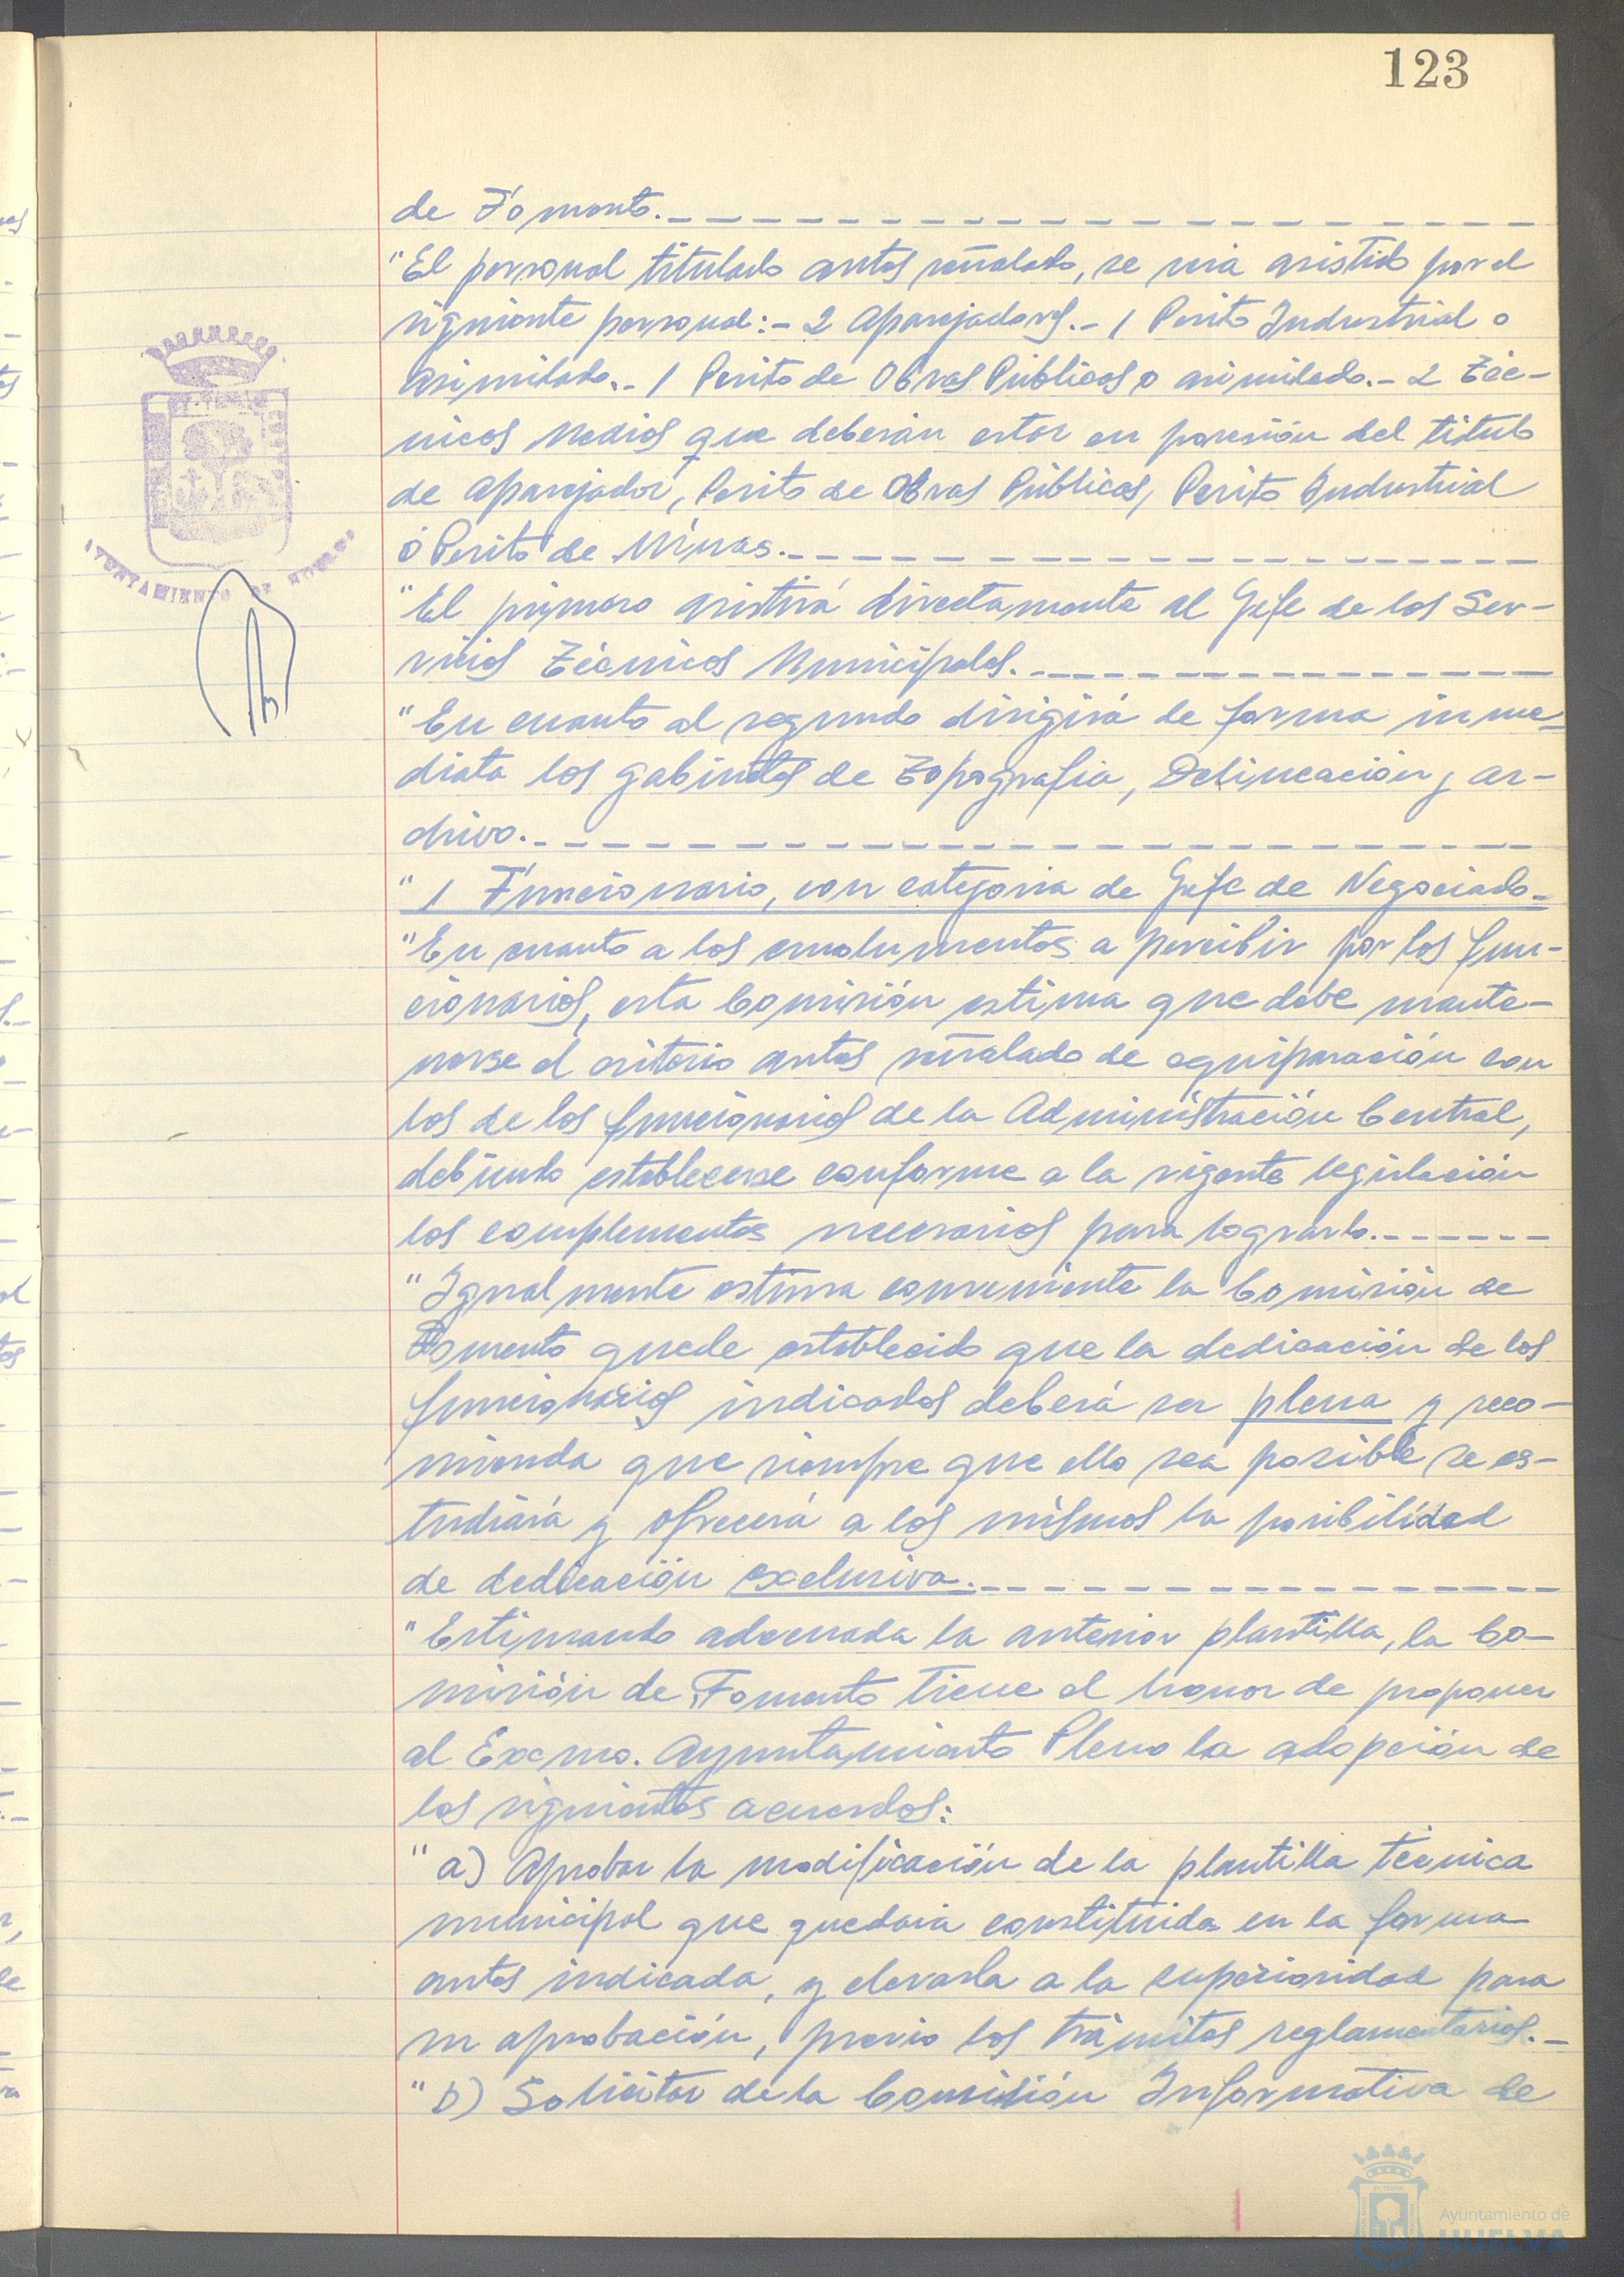 123
de Fomento.-
"El personal titulado antes señalado, se verá asistido por el
siguiente personal:- 2 Aparejadores.- 1 Perito Industrial o
asimilado.- 1 Perito de Obras Públicas o asimilado.- 2 Téc-
nicos Medios que deberán estar en posesión del título
de Aparejador, Perito de Obras Públicas, Perito Industrial
ó Perito de Minas.-
"El primero asistirá directamente al Gefe de los Ser-
vicios Técnicos Municipales.-
"En cuanto al segundo dirigirá de forma inme-
diata los gabinetes de Topografía, Delineación y ar-
chivo.-
"1 Funcionario, con categoria de Gefe de Negociado.-
"En cuanto a los emolumentos a percibir por los fun-
cionarios, esta Comisión estima que debe mante-
nerse el criterio antes señalado de equiparación con
los de los funcionarios de la Administración Central,
debiendo establecerse conforme a la vigente legislación
los complementos necesarios para lograrlo.-
"Igualmente estima conveniente la Comisión de
Fomento quede establecido que la dedicación de los
funcionarios indicados deberá ser plena y reco-
mienda que siempre que ello sea posible se es-
tudiará y ofrecerá a los mismos la posibilidad
de dedicación exclusiva.-
"Estimando adecuada la anterior plantilla, la Co-
misión de Fomento tiene el honor de proponer
al Excmo. Ayuntamiento Pleno la adopción de
los siguientes acuerdos:
"a) Aprobar la modificación de la plantilla técnica
municipal que quedaria constituida en la forma
antes indicada, y elevarla a la superioridad para
su aprobación, previo los trámites reglamentarios.-
"b) Solicitar de la Comisión Informativa de
AYUNTAMIENTO DE HUELVA
Ayuntamiento de
HUELVA